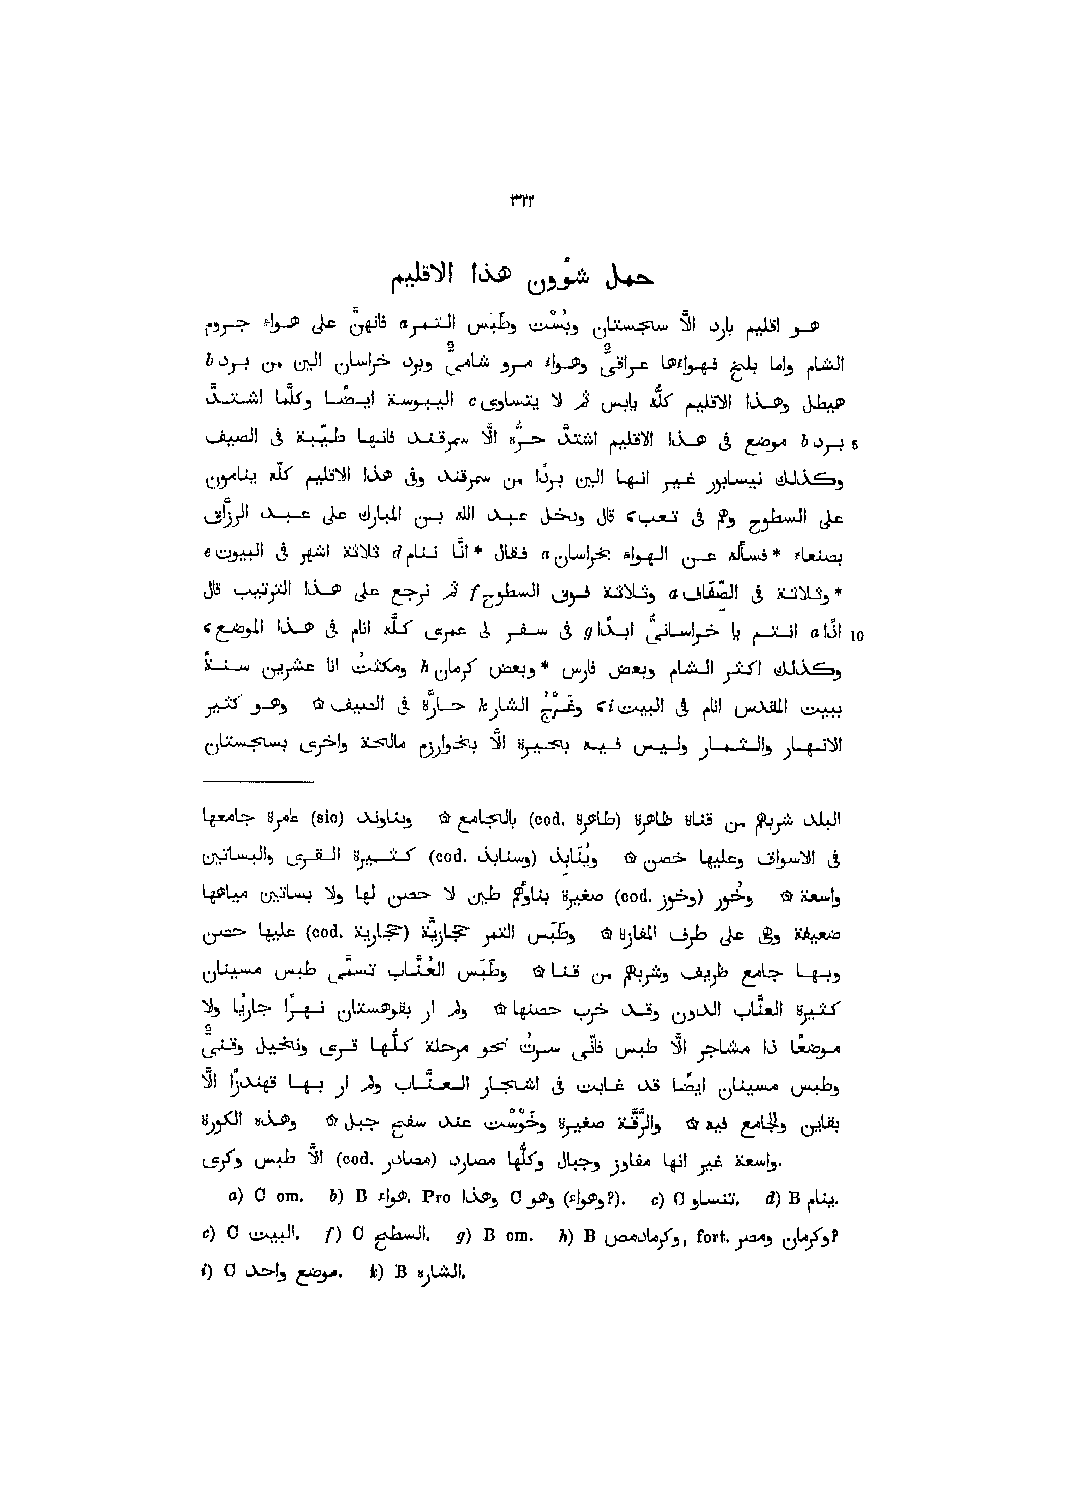 ٣٢٢
جمل شؤون هذا الاقليم
هو اقليم بارد الّا سجستان وبُسْت وطَبَس التمر a فانهنّ على هواء جروم
الشام واما بلخ فهواءها عراقىٌّ وهواء مرو شامىٌّ وبرد خراسان الين من برد b
هيطل وهذا الاقليم كلّه يابس ثم لا يتساوى c اليبوسة ايضًا وكلّما اشتدّ
5 برد b موضع فى هذا الاقليم اشتدّ حرُّه الّا سمرقند فانها طيّبة فى الصيف
وكذلك نيسابور غير انها الين بردًا من سمرقند وفى هذا الاقليم كلّه ينامون
على السطوح وهم فى تعب c قال ودخل عبد الله بن المبارك على عبد الرزّاق
بصنعاء *فسأله عن الهواء بخراسان a فقال *انّا ننام d ثلاثة اشهر فى البيوت e
*وثلاثة فى الصِّفاف a وثلاثة فوق السطوح f ثم نرجع على هذا الترتيب قال
10 انّا a انتم يا خراسانىُّ ابدًا g فى سفر لى عمرى كلّه انام فى هذا الموضع c
وكذلك اكثر الشام وبعض فارس *وبعض كرمان h ومكثتُ انا عشرين سنةً
ببيت المقدس انام فى البيت i c وغَرْجُ الشار k حارّة فى الصيف ۞ وهو كثير
الانهار والثمار وليس فيه بحيرة الّا بخوارزم مالحة واخرى بسجستان
البلد شربهم من قناة ظاهرة (cod. طاهرة) بالجامع ۞ ويناوند (sic) عامرة جامعها
فى الاسواق وعليها حصن ۞ ويُنَابِذ (cod. وسنابذ) كثيرة القرى والبساتين
واسعة ۞ وخُور (cod. وخوز) صغيرة بناوُهم طين لا حصن لها ولا بساتين مياهها
ضعيفة وهى على طرف المفازة ۞ وطَبَس التمر حجازيّة (cod. حجارية) عليها حصن
وبها جامع ظريف وشربهم من قنا ۞ وطَبَس العُنّاب تسمّى طبس مسينان
كثيرة العنّاب الدون وقد خرب حصنها ۞ ولم ار بقوهستان نهرًا جاريًا ولا
موضعًا ذا مشاجر الّا طبس فانّى سرتُ نحو مرحلة كلُّها قرى ونخيل وقنىٌّ
وطبس مسينان ايضًا قد غابت فى اشجار العنّاب ولم ار بها قهندزًا الّا
بقاين والجامع فيه ۞ والرَّقَّة صغيرة وخُوْسْت عند سفح جبل ۞ وهذه الكورة
واسعة غير انها مفاوز وجبال وكلُّها مصارد (cod. مصادر) الّا طبس وكرى.
a) C om. b) B هواء. Pro وهذا C وهو (وهواء?). c) C تتساو. d) B ينام.
e) C البيت. f) C السطح. g) B om. h) B وكرمادمص, fort. وكرمان ومصر?
i) C موضع واحد. k) B الشاره.